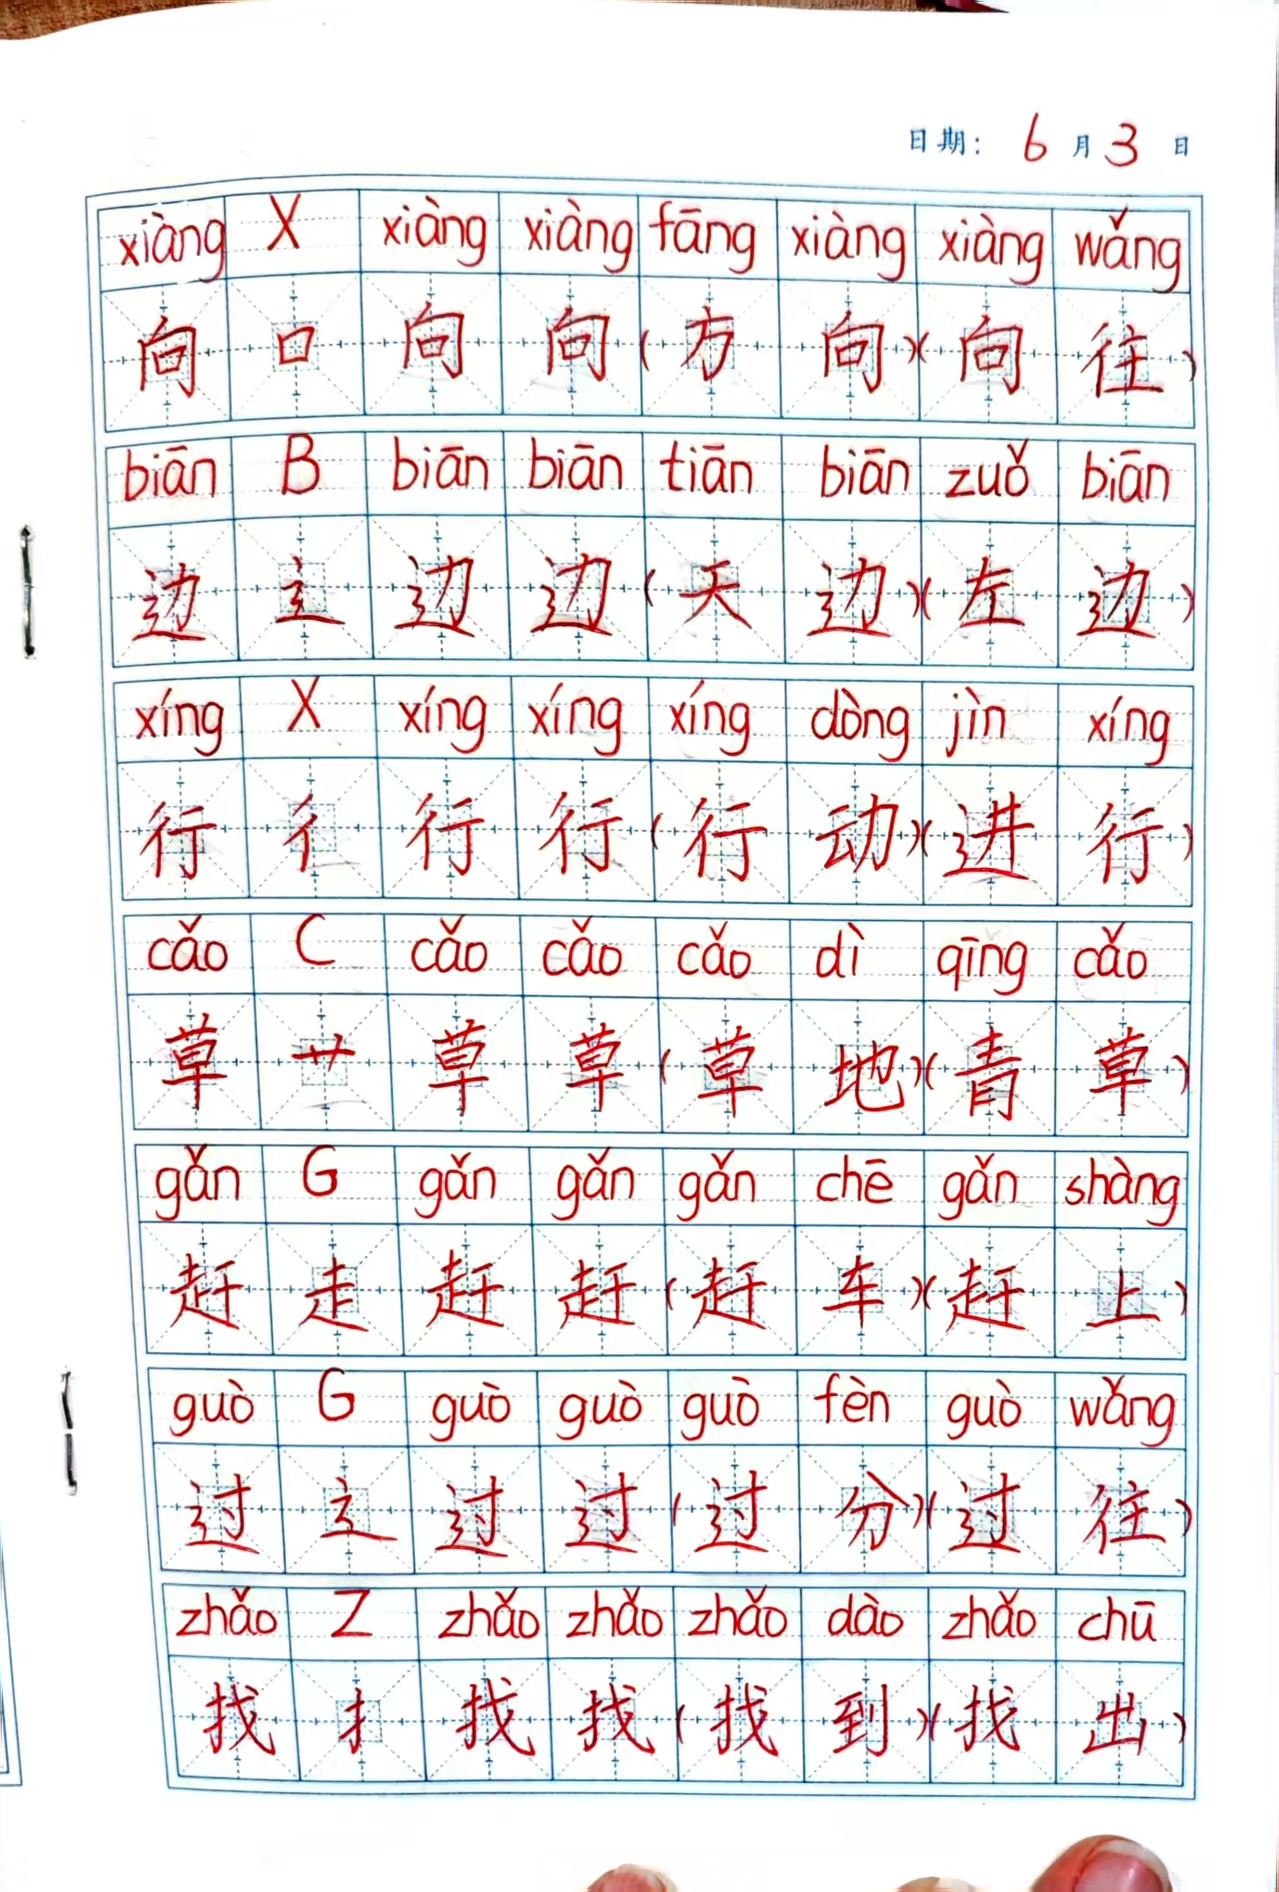 日期: 6 月 3 日
xiàng X xiàng xiàng fāng xiàng xiàng wǎng
向 口 向 向 (方 向)(向 往)
biān B biān biān tiān biān zuǒ biān
边 辶 边 边 (天 边)(左 边)
xíng X xíng xíng xíng dòng jìn xíng
行 彳 行 行 (行 动)(进 行)
cǎo C cǎo cǎo cǎo dì qīng cǎo
草 艹 草 草 (草 地)(青 草)
gǎn G gǎn gǎn gǎn chē gǎn shàng
赶 走 赶 赶 (赶 车)(赶 上)
guò G guò guò guò fèn guò wǎng
过 辶 过 过 (过 分)(过 往)
zhǎo Z zhǎo zhǎo zhǎo dào zhǎo chū
找 扌 找 找 (找 到)(找 出)